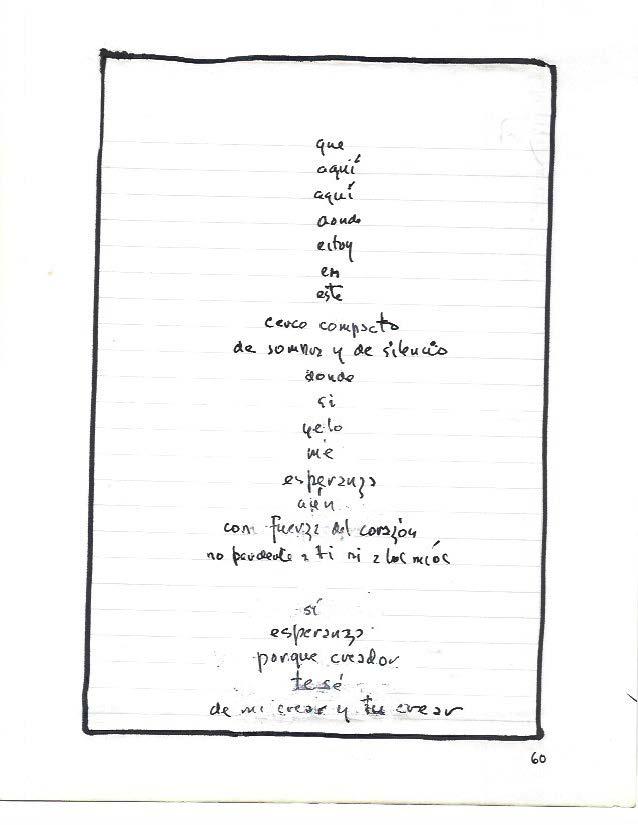 que
aquí
aquí
donde
estoy
en
este
cerco compacto
de sombra y de silencio
donde
si
yelo
me
esperanza
aún
con fuerza del corazón
no perderte a ti ni a los míos
sí
esperanza
porque creador
te sé
de mi crear y tu crear
60